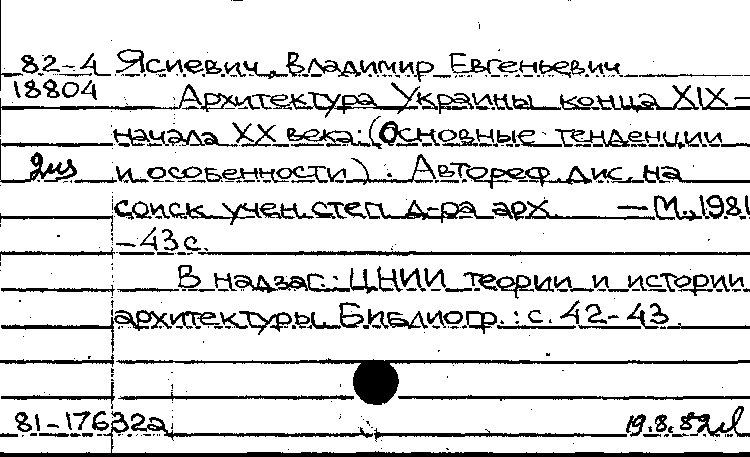 82-4 Ясиевич, Владимир Евгеньевич
18804 Архитектура Украины конца XIX-
начала XX века: (Основные тенденции
2из и особенности). Автореф. дис. на
соиск. учен. степ. д-ра арх. — М., 1981
-43 с.
В надзаг.: ЦНИИ теории и истории
архитектуры. Библиогр.: с. 42-43.
81-17632а 19.8.82